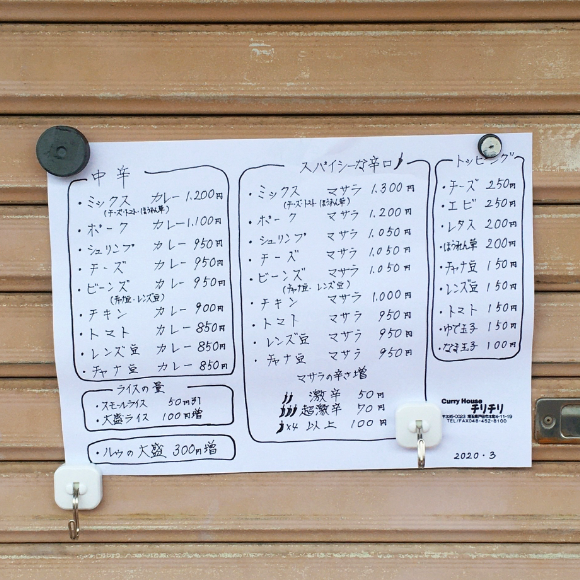 中辛
・ミックス カレー 1,200円
(チーズ・トマト・ほうれん草)
・ポーク カレー 1,100円
・シュリンプ カレー 950円
・チーズ カレー 950円
・ビーンズ カレー 950円
(チャナ豆・レンズ豆)
・チキン カレー 900円
・トマト カレー 850円
・レンズ豆 カレー 850円
・チャナ豆 カレー 850円
ライスの量
・スモールライス 50円引
・大盛ライス 100円増
・ルゥの大盛 300円増
スパイシーな辛口
・ミックス マサラ 1,300円
(チーズ・トマト・ほうれん草)
・ポーク マサラ 1,200円
・シュリンプ マサラ 1,050円
・チーズ マサラ 1,050円
・ビーンズ マサラ 1,050円
(チャナ豆・レンズ豆)
・チキン マサラ 1,000円
・トマト マサラ 950円
・レンズ豆 マサラ 950円
・チャナ豆 マサラ 950円
マサラの辛さ増
激辛 50円
超激辛 70円
×4 以上 100円
トッピング
・チーズ 250円
・エビ 250円
・レタス 200円
・ほうれん草 200円
・チャナ豆 150円
・レンズ豆 150円
・トマト 150円
・ゆで玉子 150円
・なま玉子 100円
Curry House
チリチリ
TEL/FAX048-452-8100
2020.3